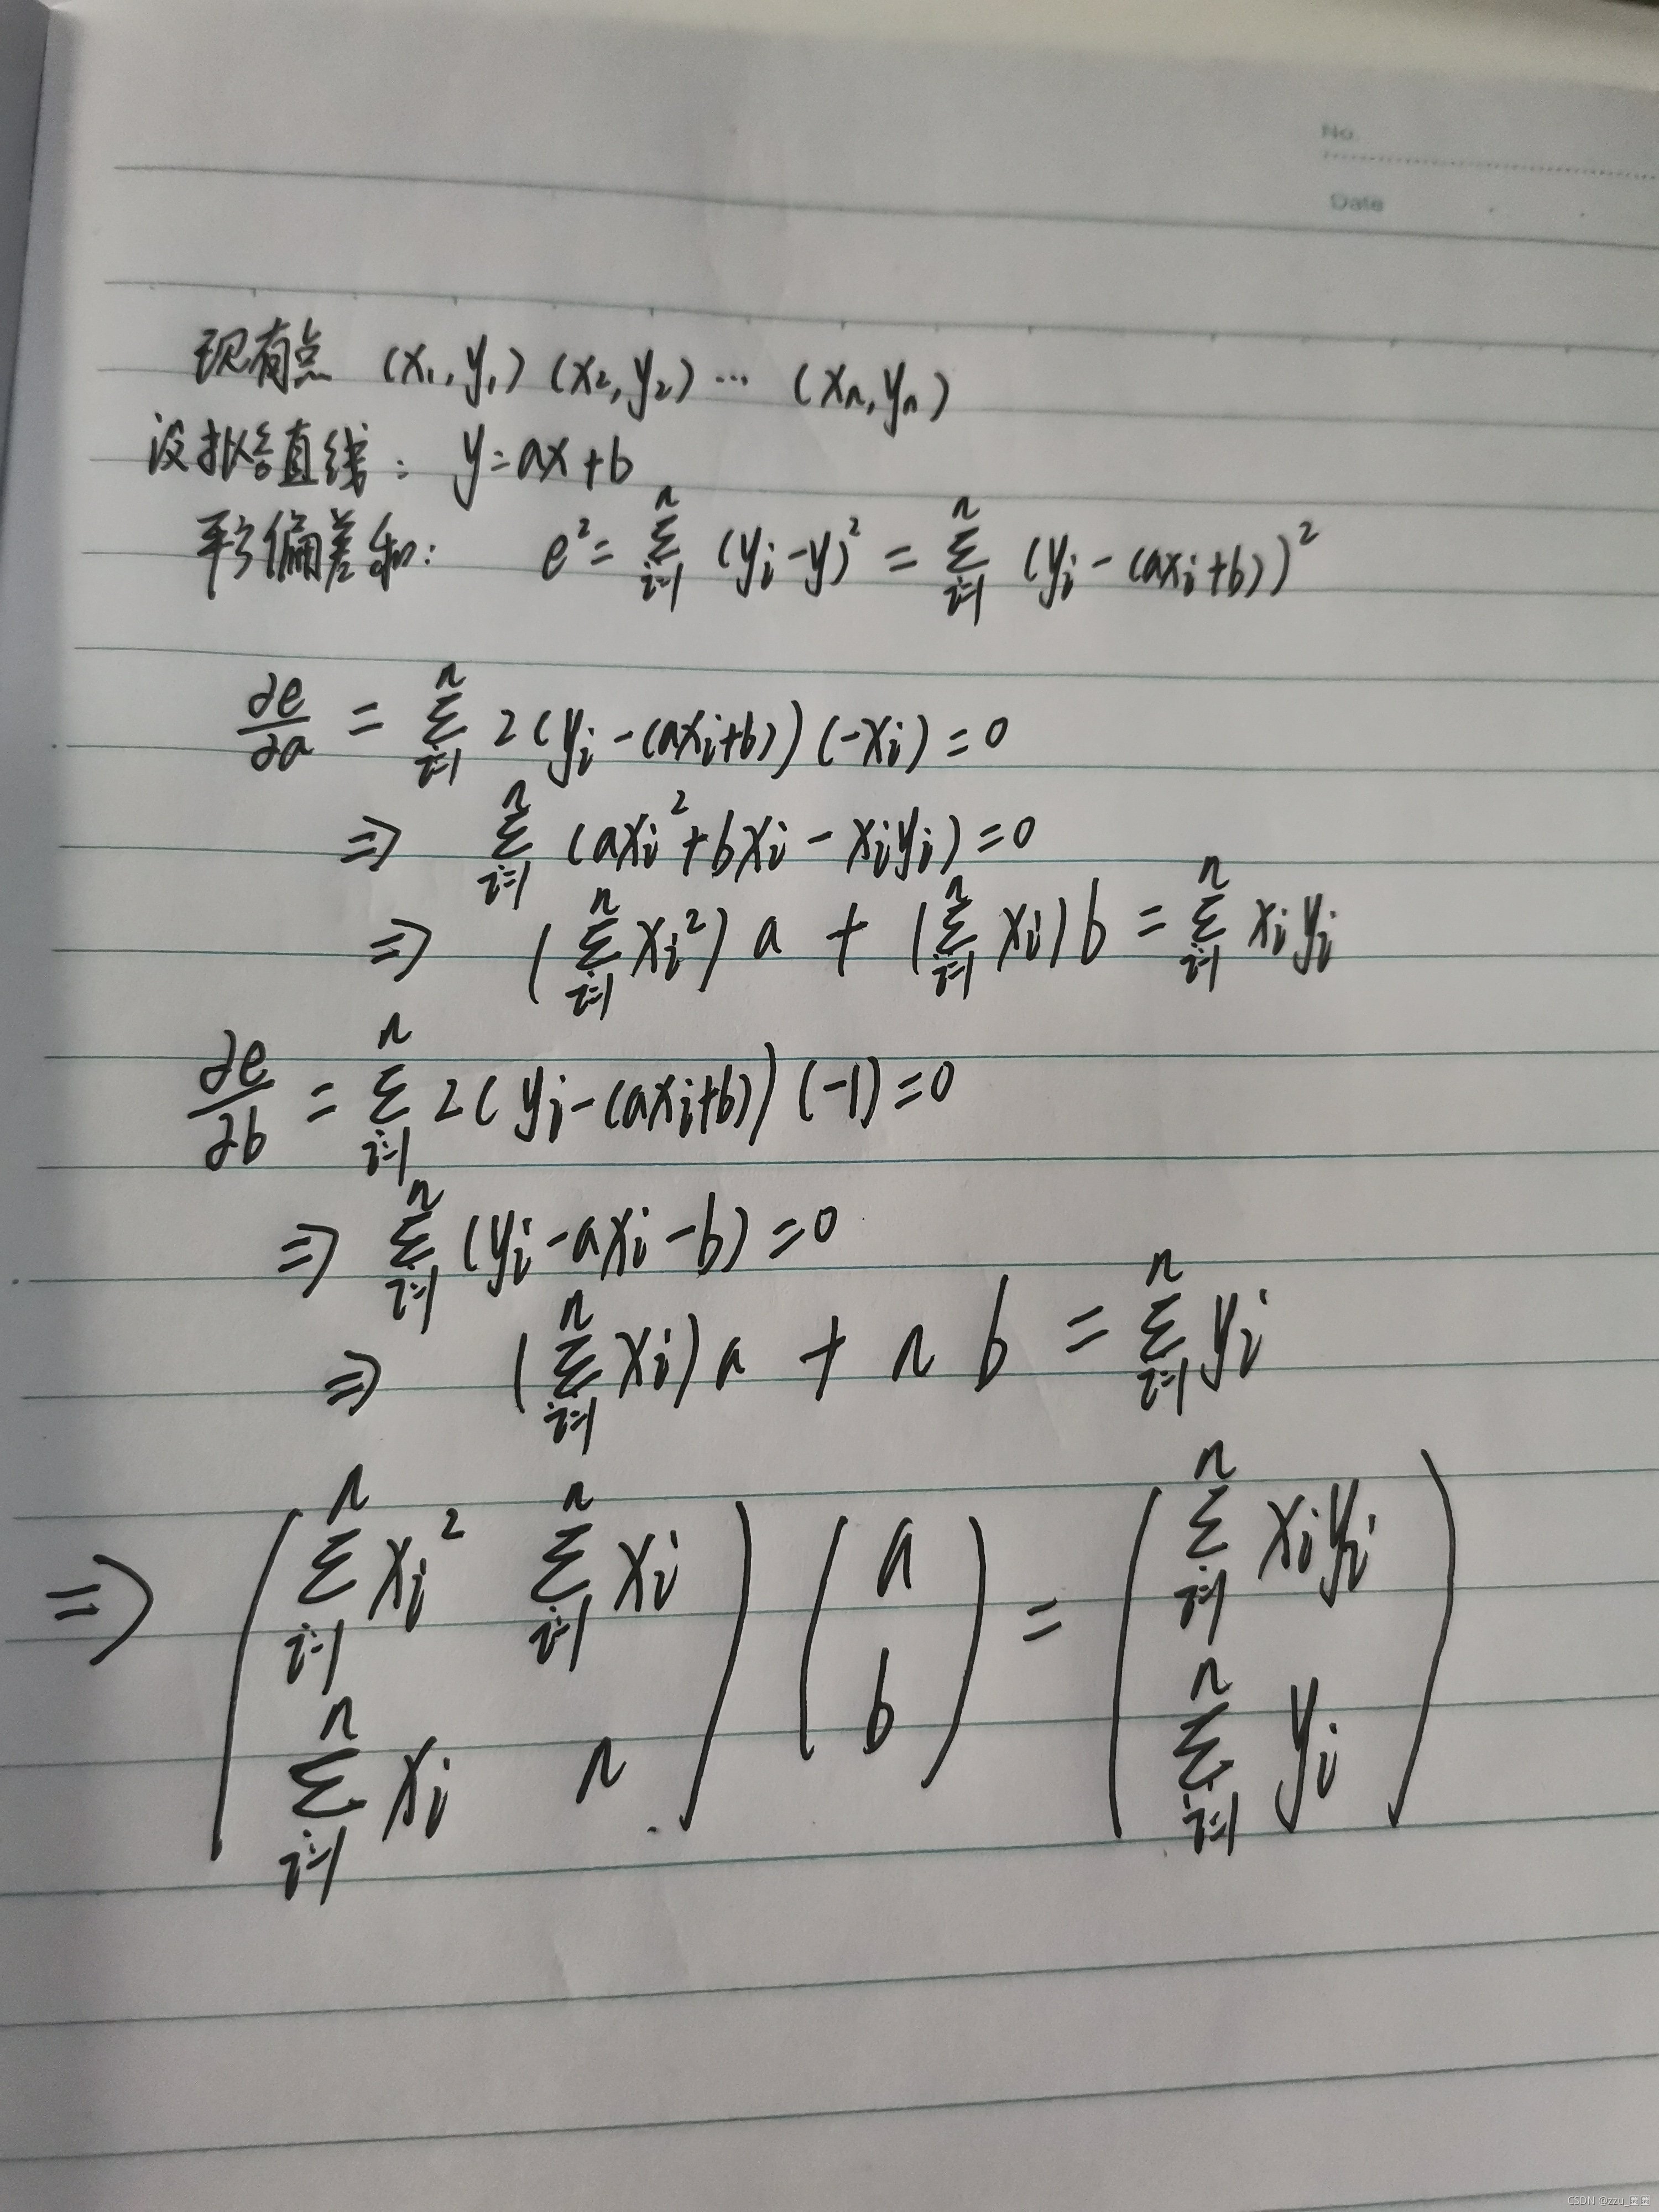 No.
Date
现有点 (x₁,y₁) (x₂,y₂) ⋯ (xₙ,yₙ)
设拟合直线: y=ax+b
平方偏差和: e² = ∑_{i=1}^{n} (y_i-y)² = ∑_{i=1}^{n} (y_i-(ax_i+b))²
∂e/∂a = ∑_{i=1}^{n} 2(y_i-(ax_i+b))(-x_i)=0
⇒ ∑_{i=1}^{n} (ax_i²+bx_i-x_iy_i)=0
⇒ (∑_{i=1}^{n} x_i²)a + (∑_{i=1}^{n} x_i)b = ∑_{i=1}^{n} x_iy_i
∂e/∂b = ∑_{i=1}^{n} 2(y_i-(ax_i+b))(-1)=0
⇒ ∑_{i=1}^{n} (y_i-ax_i-b)=0
⇒ (∑_{i=1}^{n} x_i)a + n b = ∑_{i=1}^{n} y_i
⇒ ( ∑_{i=1}^{n} x_i² ∑_{i=1}^{n} x_i ) ( a ) = ( ∑_{i=1}^{n} x_iy_i )
( ∑_{i=1}^{n} x_i n ) ( b ) ( ∑_{i=1}^{n} y_i )
CSDN @zzu_圈圈